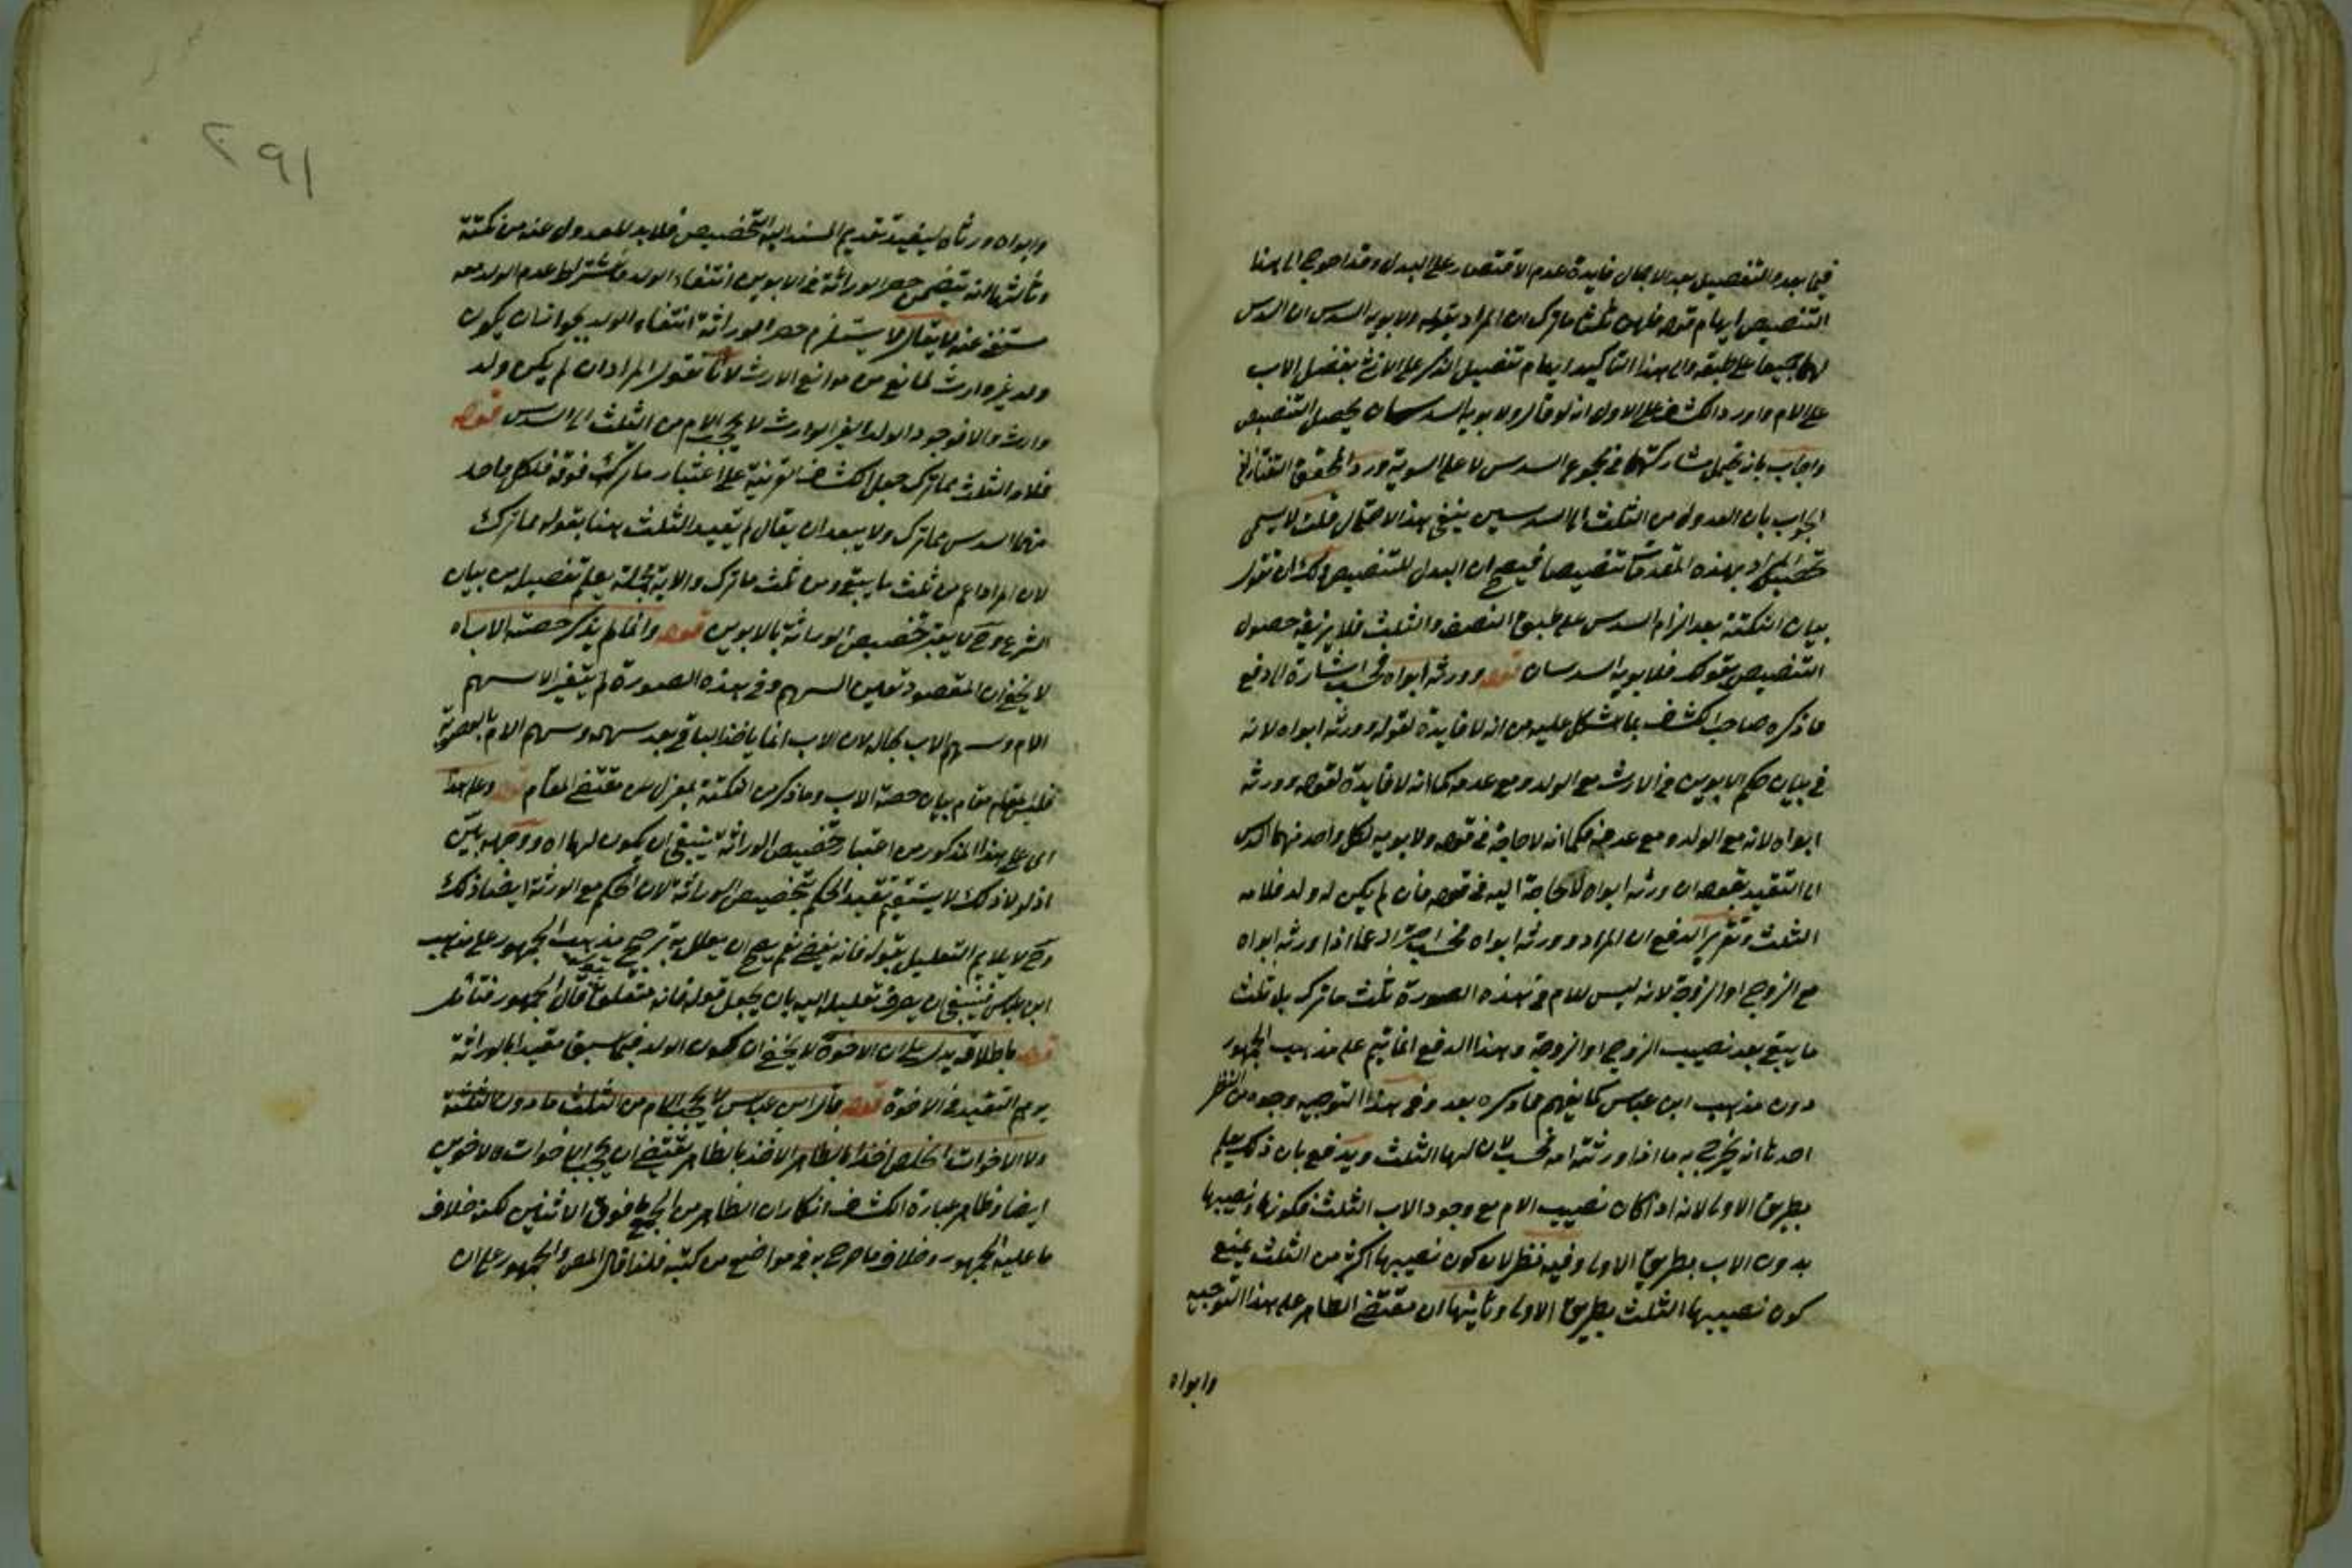 فيما بعده والتفصيل بعد الاجمال فايدة عدم الاقتصار على البدل وقد احوج الى هذا
التنصيص ايهام قوله فلهن ثلثا ما ترك ان المراد بقوله ولابويه السدس ان السدس
لهما جميعا على طبقه والى هذا التاكيد ايهام تفضيل الذكر على الانثى بفضل الاب
على الام واورد الكشف على الاول انه لو قال ولابويه السدسان يحصل التنصيص
واجاب بانه يحتمل مشاركتهما في مجموع السدس لا على السوية ورد المحقق التفتازاني
الجواب بان العدول من الثلث الى السدسين ينفي هذا الاحتمال قلت لا يسمى
المراد بهذه المقدمات تنصيصا فيصح ان البدل للتنصيص ولك ان تقول
بيان النكتة بعد الزام السدس على طبق النصف والثلث فلا يزيفه حصول
التنصيص بقولك فلابويه السدسان قوله وورثه ابواه فحسب اشارة الى دفع
ما ذكره صاحب الكشف مما اشكل عليه من انه لا فايدة لقوله وورثه ابواه لانه
في بيان حكم الابوين في الارث مع الولد ومع عدمه كما انه لا فايدة لقوله وورثه
ابواه لانه مع الولد ومع عدمه فكما انه لا حاجة في قوله ولابويه لكل واحد منهما السدس
الى التقييد بقوله ان ورثه ابواه لا حاجة اليه في قوله فان لم يكن له ولد فلامه
الثلث وتقرير الدفع ان المراد وورثه ابواه فحسب احترازا عما اذا ورثه ابواه
مع الزوج او الزوجة لانه ليس للام في هذه الصورة ثلث ما ترك بل ثلث
ما يبقى بعد نصيب الزوج او الزوجة وهذا الدفع انما يتم على مذهب الجمهور
دون مذهب ابن عباس كما يفهم مما ذكره بعد وفي هذا التوجيه وجوه من النظر
احدها انه يخرج به ما اذا ورثته امه فحسب لان لها الثلث ويندفع بان ذلك يعلم
بطريق الاولى لانه اذا كان نصيب الام مع وجود الاب الثلث فكونها نصيبها
بدون الاب بطريق الاولى وفيه نظر لان كون نصيبها اكثر من الثلث يمنع
كون نصيبها الثلث بطريق الاولى وثانيها ان مقتضى الظاهر على هذا التوجيه
وابواه
٢٩١
وابواه ورثاه ليفيد تقديم المسند اليه التخصيص فلا بد للعدول عنه من نكتة
وثالثها انه يتضمن حصر الوراثة في الابوين انتفاء الولد فاشتراط عدم الولد معه
مستغنى عنه لا يقال لا يستلزم حصر الوراثة انتفاء الولد لجواز ان يكون
ولد غير وارث لمانع من موانع الارث لانا نقول المراد ان لم يكن ولد
وارث والا فوجود الولد الغير الوارث لا يحجب الام من الثلث الى السدس قوله
فلامه الثلث مما ترك جعل الكشف القرينة على اعتبار ما ترك فوقه فلكل واحد
منهما السدس مما ترك ولا يبعد ان يقال لم يقيد الثلث هنا بقوله مما ترك
لان المراد اعم من ثلث ما يبقى ومن ثلث ما ترك والاية مجملة يعلم تفصيله من بيان
الشرع وح لا يعتبر تخصيص الوراثة بالابوين قوله وانما لم يذكر حصة الاب اه
لا يخفى ان المقصود تعيين السهم وفي هذه الصورة لم يتغير الا سهم
الام وسهم الاب بحاله لان الاب انما ياخذ الباقي بعد سهمه وسهم الام بالعصوبة
فليس مقام مقام بيان حصة الاب وما ذكر من النكتة بمعزل عن مقتضى المقام قوله وعلى هذا
اى على هذا المذكور من اعتبار تخصيص الوراثة ينبغي ان يكون لهما اه ووجهه بين
اذ لولا ذلك لا يستقيم تقييد الحكم بتخصيص الوراثة لان الحكم مع الورثة ايضا ذلك
وح لا يلايم التعليل بقوله فانه يفضي نعم يصح ان يعلل به ترجيح مذهب الجمهور على مذهب
ابن عباس فينبغي ان يصرف تعليله اليه بان يجعل قوله فانه متعلقا بقوله قال الجمهور فتامل
قوله باطلاقه يدل على ان الاخوة لا يخفى ان كون الولد فيما سبق مقيدا بالوراثة
يوهم التقييد في الاخوة قوله وقال ابن عباس لا يحجب الام من الثلث ما دون الثلثة
ولا الاخوات الخلص اخذا بالظاهر الاخذ بالظاهر يقتضي ان يحجب الاخوات والاخوين
ايضا وظاهر عبارة الكشف انكار ان الظاهر من الجمع ما فوق الاثنين لكنه خلاف
ما عليه الجمهور وخلاف ما صرح به في مواضع من كتبه فلذا قال المص والجمهور على ان